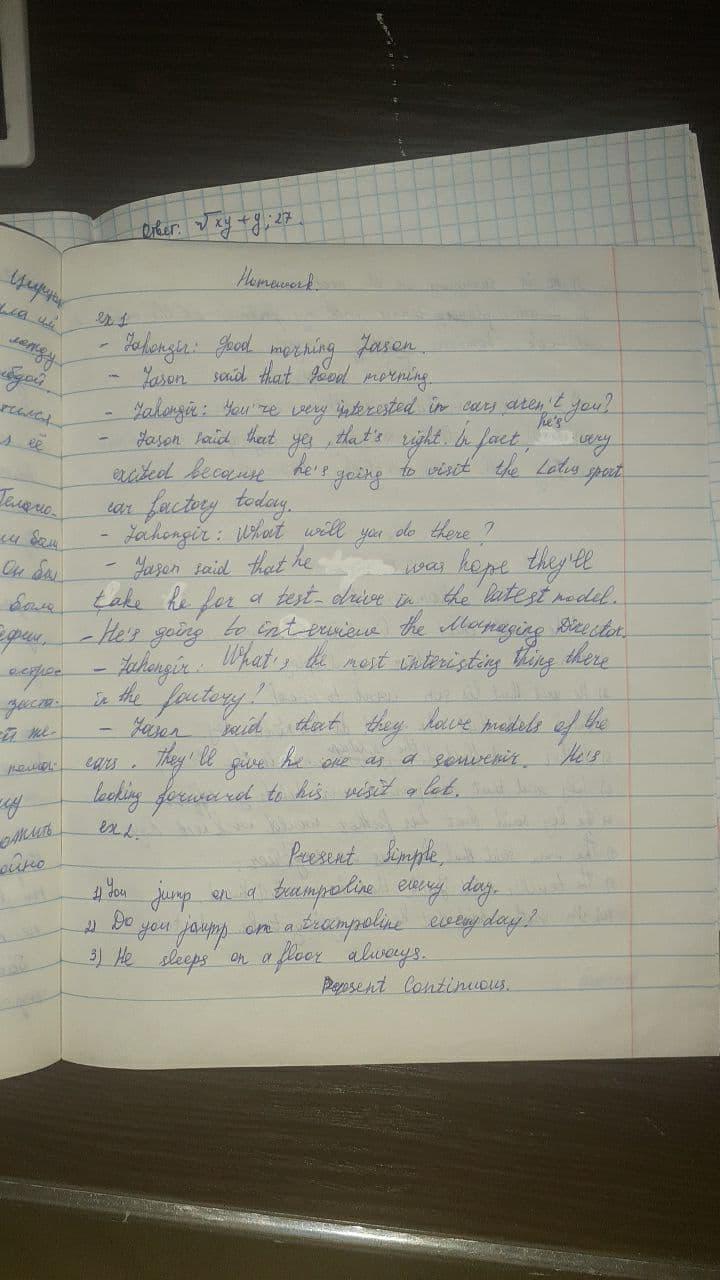 Ответ: √xy + y; 27.
Homework.
ex 1
- Jahongir: Good morning Jason.
- Jason said that good morning.
- Jahongir: You're very interested in cars aren't you?
he's
- Jason said that yes, that's right. In fact, very
excited because he's going to visit the Lotus sport
car factory today.
- Jahongir: What will you do there?
- Jason said that he was hope they'll
take he for a test-drive in the latest model.
- He's going to interview the Managing Director.
- Jahongir: What's the most interisting thing there
in the factory?
- Jason said that they have models of the
cars. They'll give he one as a souvenir. He's
looking forward to his visit a lot.
ex 2.
Present Simple,
1) You jump on a trampoline every day.
2) Do you jump on a trampoline every day?
3) He sleeps on a floor always.
Present Continuous.
ила им
её
Он был
была
ойно